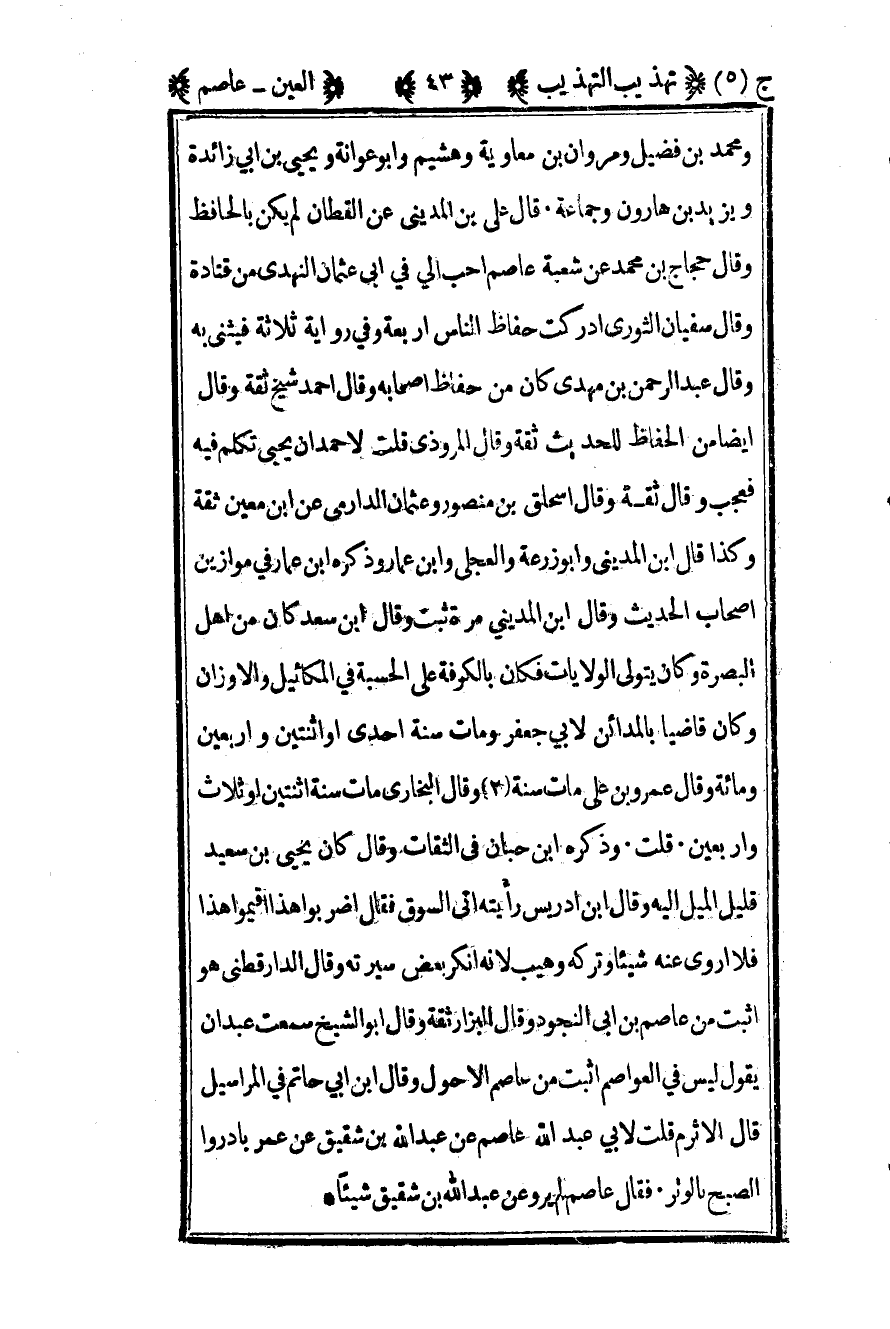 ج (٥) تهذيب التهذيب ٤٣ العين ـ عاصم
ومحمد بن فضيل ومروان بن معاوية وهشيم وابوعوانة ويحيى بن ابي زائدة
ويزيد بن هارون وجماعة • قال على بن المدينى عن القطان لم يكن بالحافظ
وقال حجاج بن محمد عن شعبة عاصم احب الي في ابي عثمان النهدى من قتادة
وقال سفيان الثورى ادركت حفاظ الناس اربعة وفي رواية ثلاثة فيثنى به
وقال عبدالرحمن بن مهدى كان من حفاظ اصحابه وقال احمد شيخ ثقة وقال
ايضا من الحفاظ للحديث ثقة وقال المروذى قلت لاحمد ان يحيى تكلم فيه
فعجب وقال ثقة وقال اسحاق بن منصور وعثمان الدارمى عن ابن معين ثقة
وكذا قال ابن المدينى وابوزرعة والعجلى وابن عمار وذكره ابن عمار في موازين
اصحاب الحديث وقال ابن المديني مرة ثبت وقال ابن سعد كان من اهل
البصرة وكان يتولى الولايات فكان بالكوفة على الحسبة في المكائيل والاوزان
وكان قاضيا بالمدائن لابي جعفر ومات سنة احدى او اثنتين و اربعين
ومائة وقال عمرو بن على مات سنة (٣) وقال البخارى مات سنة اثنتين او ثلاث
واربعين • قلت • وذكره ابن حبان فى الثقات وقال كان يحيى بن سعيد
قليل الميل اليه وقال ابن ادريس رأيته اتى السوق فقال اضربوا هذا اقيموا هذا
فلا اروى عنه شيئا وتركه وهيب لانه انكر بعض سيرته وقال الدارقطنى هو
اثبت من عاصم بن ابى النجود وقال البزار ثقة وقال ابوالشيخ سمعت عبدان
يقول ليس في العواصم اثبت من عاصم الاحول وقال ابن ابي حاتم في المراسيل
قال الاثرم قلت لابي عبد الله عاصم عن عبدالله بن شقيق عن عمر بادروا
الصبح بالوتر • فقال عاصم لم يرو عن عبدالله بن شقيق شيئاً •